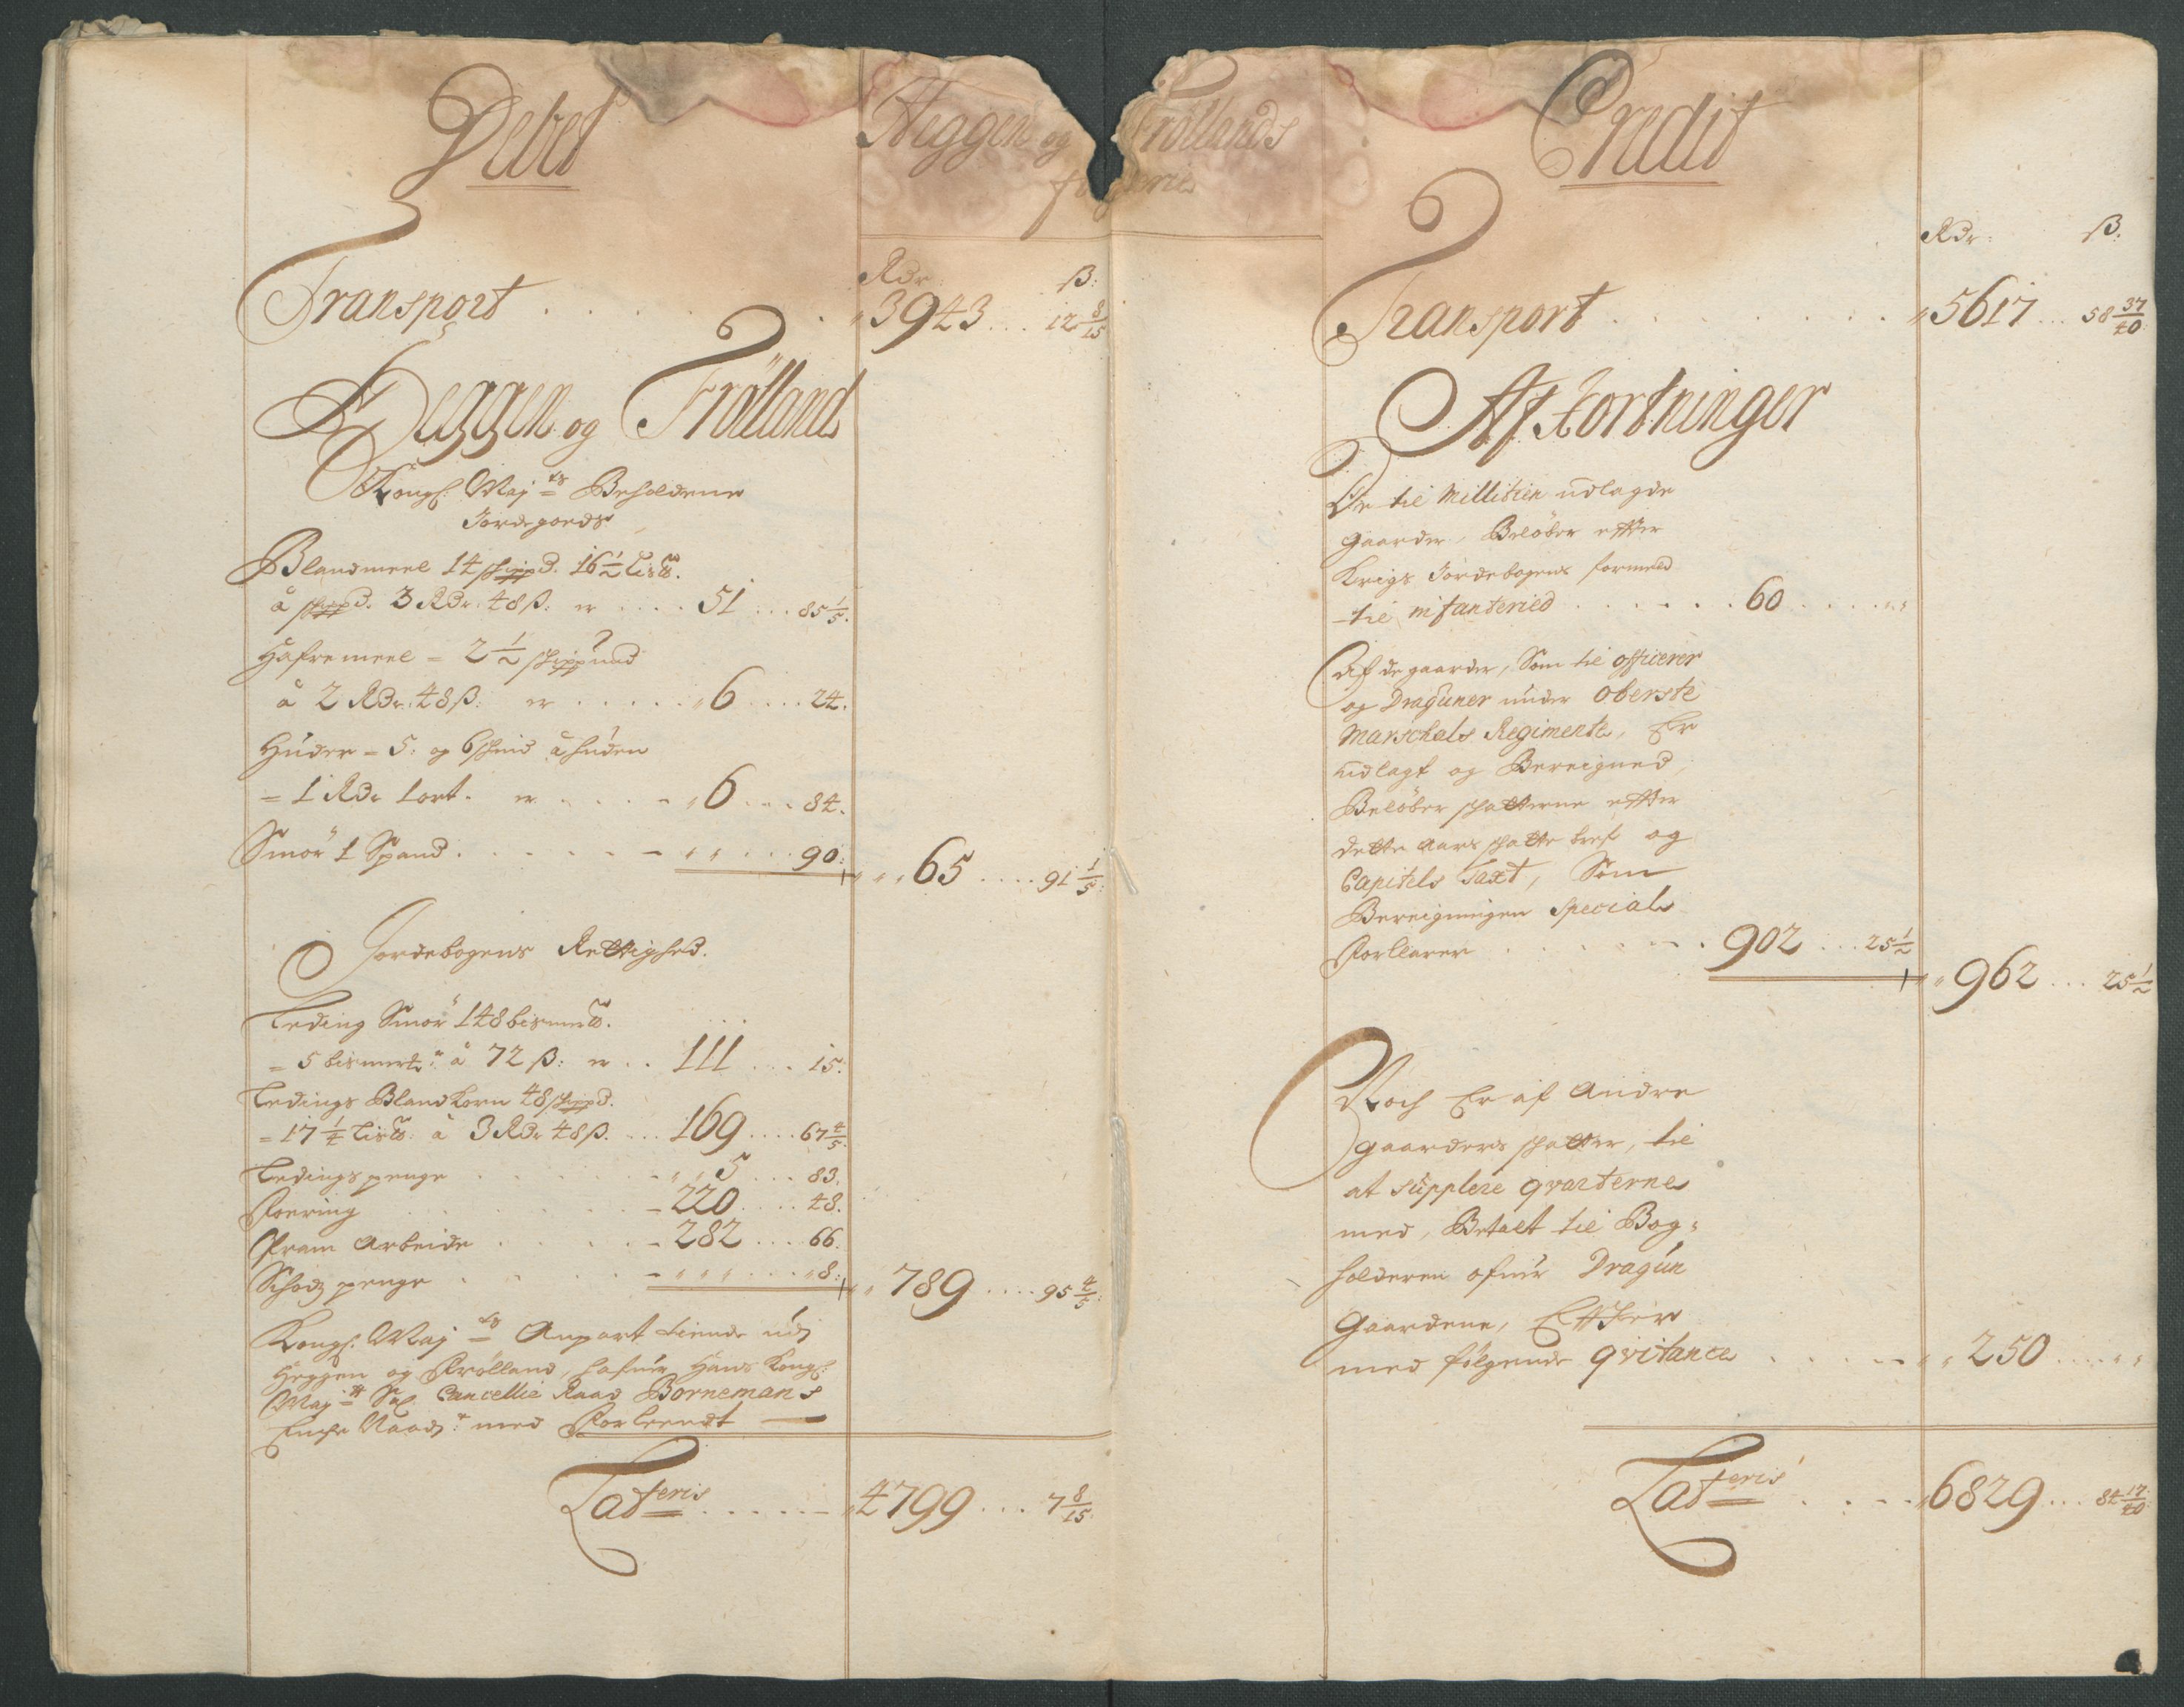 Debet
Heggen og Frøllands
fogderie
Rdr: ß:
Transport . . . . . . . 3943 . . . 12 8/15
Heggen og Frølland
Kongl: Maj:ts Beholdene
Jordegoeds
Blandmeel 14 schippd. 16½ Lis℔.
å schippd. 3 Rdr. 48 ß. er . . . . 51 . . . 85 1/5.
Hafremeel = 2½ schippund
å 2 Rdr. 48 ß: er . . . . . 6 . . . . 24.
Huder = 5: og 6 schind å huden
= 1 Rdr 1 ort. er . . . . 6 . . . 84.
Smør 1 Spand . . . . . . . . . 90:
65 . . . . 91 1/5:
Jordebogens Rettighed.
Leding Smør 148 bismer℔.
= 5 bismerk:r å 72 ß: er . . 111 . . . 15:
Ledings Blandkorn 48 schippd.
= 17¼ Lis℔: å 3 Rdr 48 ß. . . . 169 . . . . 67 4/5.
Ledings penge . . . . . 5 . . . 83.
Foering . . . . . 220 . . . . 48.
Fram Arbeide . . . . . 282 . . . . 66.
Schodz penge . . . . . . . . 8:
789 . . . . 95 4/5:
Kongl: Maj:ts Anpart tiende udj
Heggen og Frølland, hafuer Hans Kongl:
Maj:tt Sal. Cancellie Raad Bornemans
Enche Naadst: med Forleendt
Lateris . . . . . 4799 . . . 7 8/15.
Credit
Rdr: ß:
Transport . . . . . . . . 5617 . . . 58 37/40:
Afkortninger
De til Millitien udlagde
gaarder, Beløber efter
Krigs Jordebogens formeld
til infanteried . . . . . . 60 . . . .
Af de gaarder, Som til officerer
og Draguner under Oberste
Marschals Regimente, Er
udlagt og Bereigned,
Beløber schatterne efter
dette aars schatte bref og
Capitels Taxt, Som
Bereigningen Special
Forklarer . . . . . 902 . . . 25½
962 . . . 25½
Noch Er af Andre
gaarders schatter, til
at supplere qvarterne
med, Betalt til Bog=
holderen ofuer Dragun
Gaardene, Effter
med følgende qvitance . . . . . 250 . . . .
Lateris . . . . 6829 . . . 84 17/40: